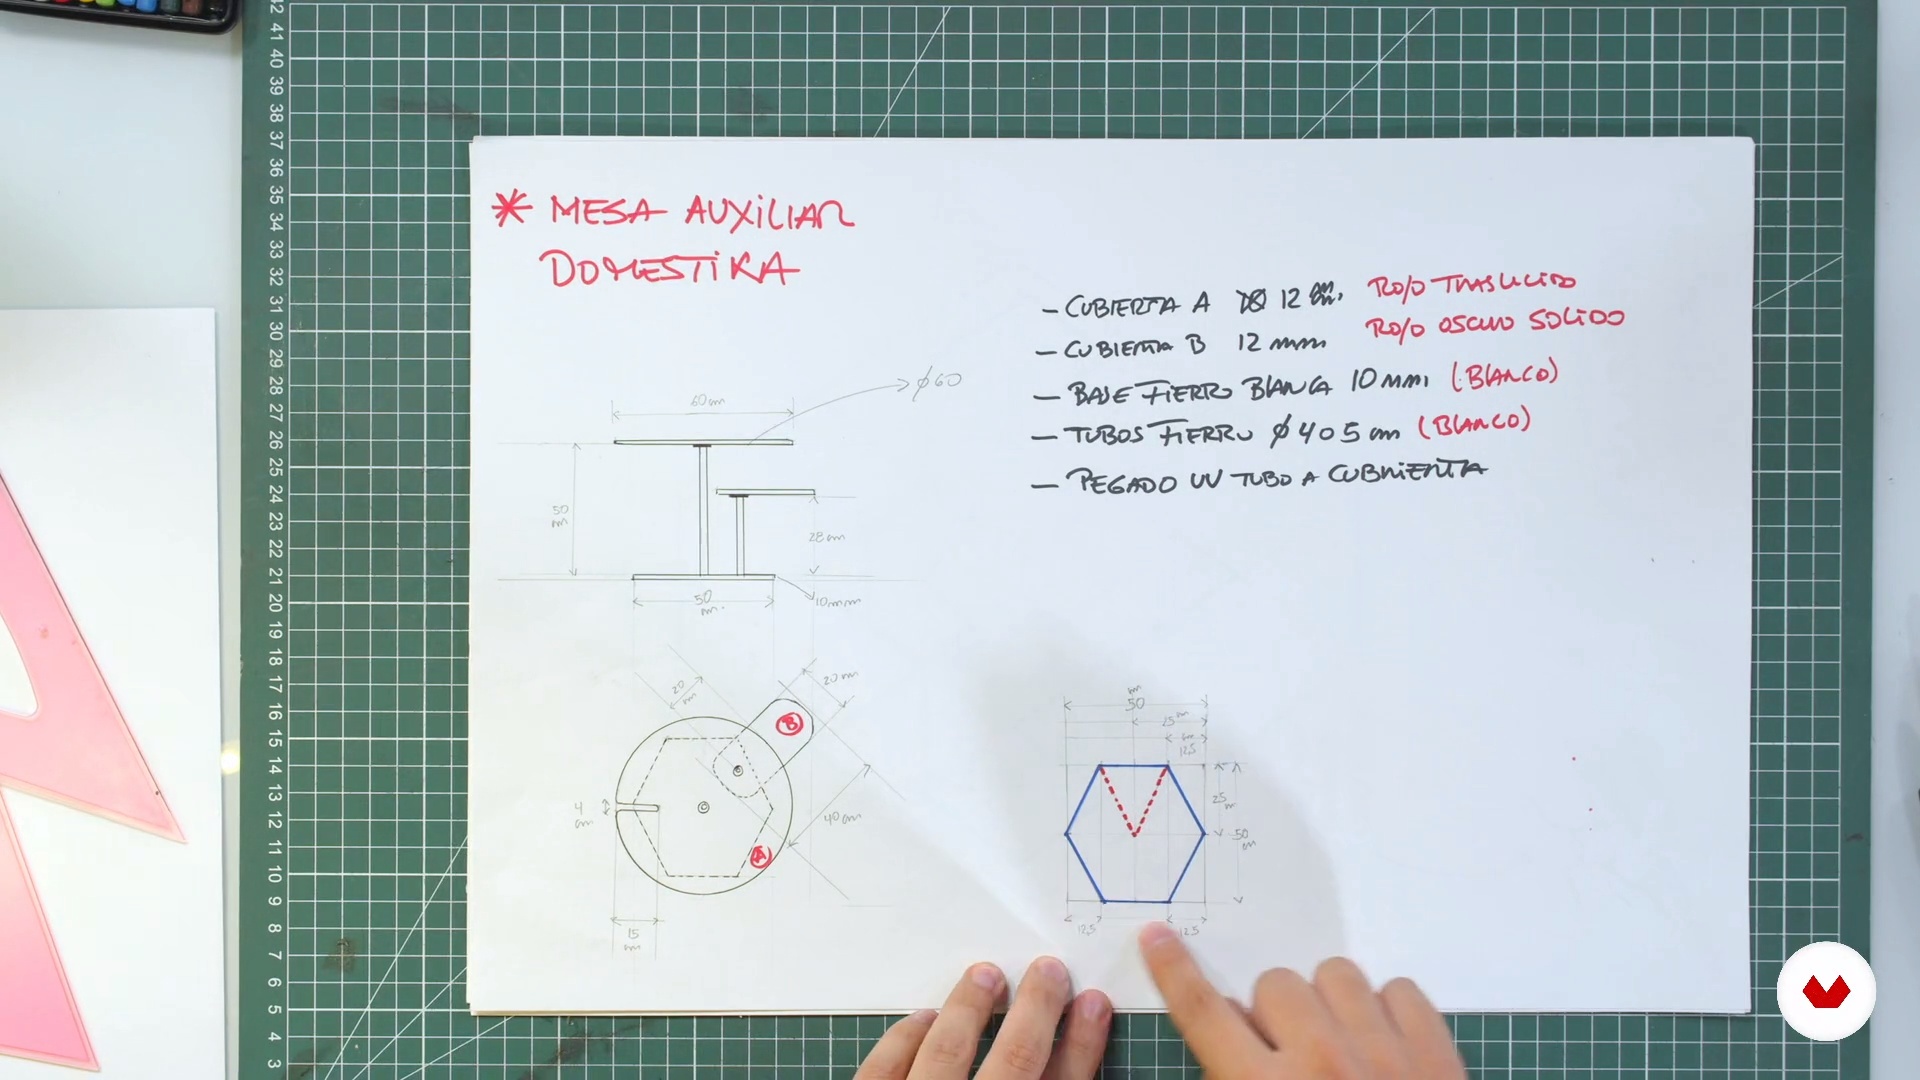 * MESA AUXILIAR
DOMESTIKA
- CUBIERTA A 12 cm. ROJO TRASLUCIDO
- CUBIERTA B 12 mm ROJO OSCURO SOLIDO
- BASE FIERRO BLANCA 10 mm (BLANCO)
- TUBOS FIERRO ø 4 o 5 cm (BLANCO)
- PEGADO UV TUBO A CUBIERTA
ø60
60cm
50
cm
28cm
50
cm.
10mm
20
cm
20cm
B
4
cm
C
A
40cm
15
cm
cm
50
25cm
cm
12,5
25
cm
50
cm
12,5
12,5
42
41
40
39
38
37
36
35
34
33
32
31
30
29
28
27
26
25
24
23
22
21
20
19
18
17
16
15
14
13
12
11
10
9
8
7
6
5
4
3